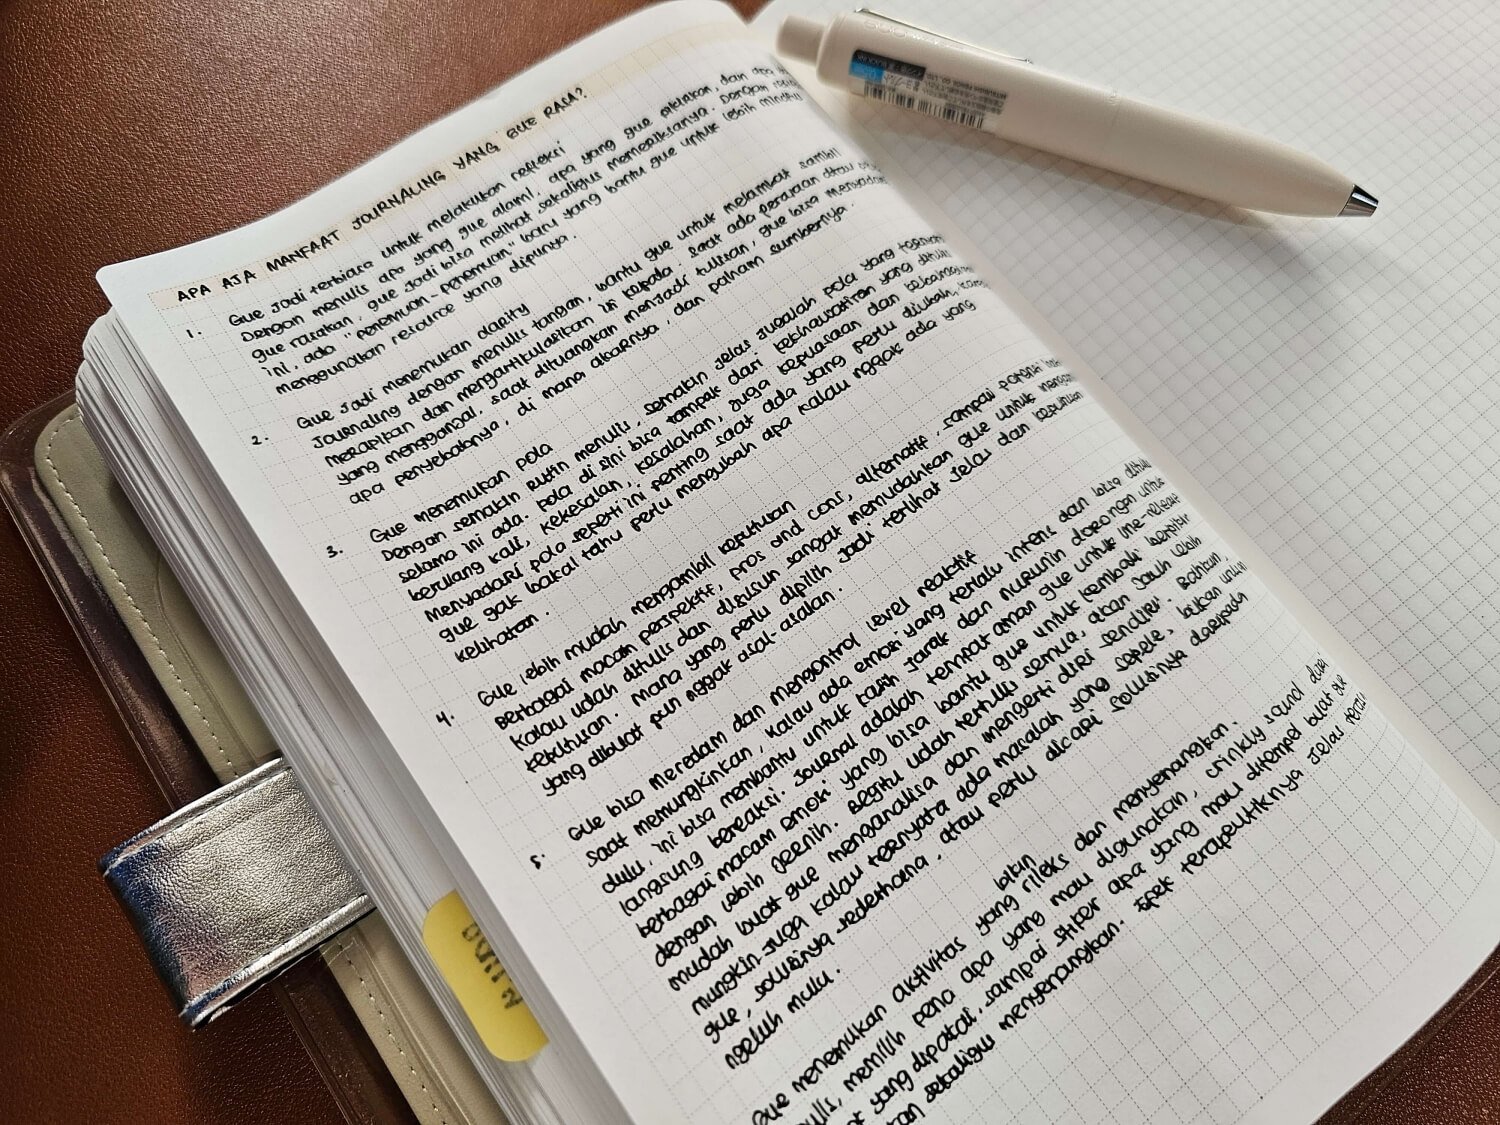 APA AJA MANFAAT JOURNALING YANG GUE RASA?
1. Gue jadi terbiasa untuk melakukan refleksi
Dengan menulis apa yang gue alami, apa yang gue pikirkan, dan apa
gue rasakan, gue jadi bisa melihat sekaligus memeriksanya. Dengan
ini, ada "penemuan-penemuan" baru yang bantu gue untuk lebih
menggunakan resource yang dipunya.
2. Gue jadi menemukan clarity
Journaling dengan menulis tangan, bantu gue untuk melambat sambil
merapikan dan mengartikulasikan isi kepala. Saat ada perasaan atau
yang mengganjal, saat dituangkan menjadi tulisan, gue bisa menyadari
apa penyebabnya, di mana akarnya, dan paham sumbernya.
3. Gue menemukan pola
Dengan semakin rutin menulis, semakin jelas jugalah pola yang
selama ini ada. Pola di sini bisa tampak dari kekhawatiran yang ditulis
berulang kali, kekesalan, kesalahan, juga kepuasan dan
Menyadari pola seperti ini penting saat ada yang perlu diubah,
gue gak bakal tahu perlu mengubah apa kalau nggak ada yang
kelihatan.
4. Gue lebih mudah mengambil keputusan
Berbagai macam perspektif, pros and cons, alternatif, sampai
kalau udah ditulis dan disusun sangat memudahkan gue untuk
keputusan. Mana yang perlu dipilih jadi terlihat jelas dan keputusan
yang dibuat pun nggak asal-asalan.
5. Gue bisa meredam dan mengontrol level reaktif
Saat memungkinkan, kalau ada emosi yang terlalu intens dan bisa ditulis
dulu, ini bisa membantu untuk kasih jarak dan nurunin dorongan untuk
langsung bereaksi. Journal adalah tempat aman gue untuk me-release
berbagai macam emosi yang bisa bantu gue untuk kembali berpikir
dengan lebih jernih. Begitu udah tertulis semua, akan jauh lebih
mudah buat gue menganalisa dan mengerti diri sendiri. Bahkan,
mungkin juga kalau ternyata ada masalah yang sepele, bukan
gue, solusinya sederhana, atau perlu dicari solusinya daripada
ngeluh mulu.
Gue menemukan aktivitas yang bikin rileks dan menyenangkan.
memilih pena apa yang mau digunakan, crinkly sound dari
yang dipakai, sampai stiker apa yang mau ditempel buat gue
sekaligus menyenangkan. Efek terapeutiknya jelas